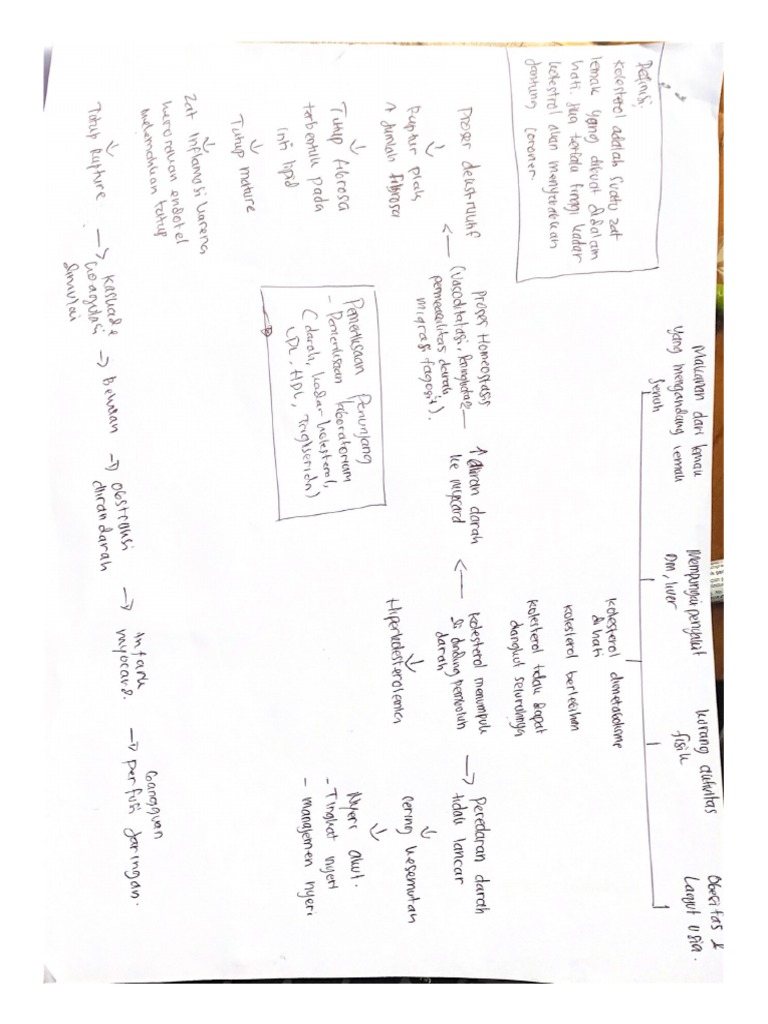 Definisi:
kolesterol adalah suatu zat
lemak yang dibuat didalam
hati. jika terlalu tinggi kadar
kolestrol akan menyebabkan
jantung coroner.
Makanan dari lemak
yang mengandung lemak
Jenuh
Mempunyai penyakit
DM, liver
kurang aktivitas
fisik
Obesitas &
Lanjut usia.
kolesterol dimetabolisme
di hati
kolesterol berlebihan
kolesterol tidak dapat
diangkut seluruhnya
kolesterol menumpuk
di dinding pembuluh
darah
→ Peredaran darah
tidak lancar
↓
cering kesemutan
↓
Nyeri akut.
- Tingkat nyeri
- manajemen nyeri
↓
Hiperkolesterolemia
←
↑ aliran darah
ke myocard
Proses Homeostasis
(Vasodilatasi,
permeabilitas darah
migrasi fagosit).
←
Proser dekstruktif
↓
Ruptur plak
↑ Jumlah fibrosa
↓
Tutup fibrosa
terbentuk pada
inti lipid
↓
Tutup mature
↓
Zat inflamasi karena
kerusakan endotel
melemahkan tutup
↓
Tutup Rupture
→ kaskade
koagulasi
dimulai
→ Bekuan
→ obstruksi
aliran darah
→ infark
myocard.
→ Gangguan
perfusi jaringan.
Pemeriksaan Penunjang
- Pemeriksaan laboratorium
(darah, kadar kolesterol,
LDL, HDL, Trigliserida)